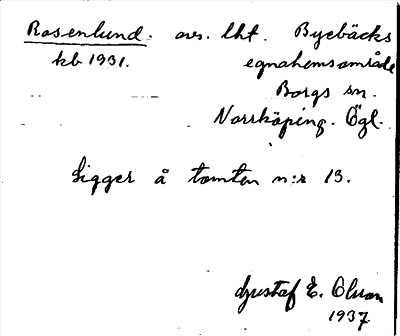 Rosenlund. avs. lht. Byebäcks
kb 1931. egnahemsområde
Borgs sn.
Norrköping. Ögl.
Ligger å tomten n:r 13.
Gustaf E. Olson
1937